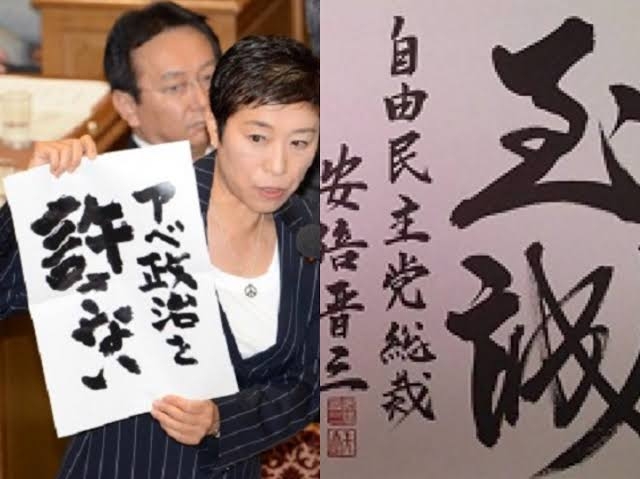 アベ政治を
許さない
至誠
自由民主党総裁
安倍晋三